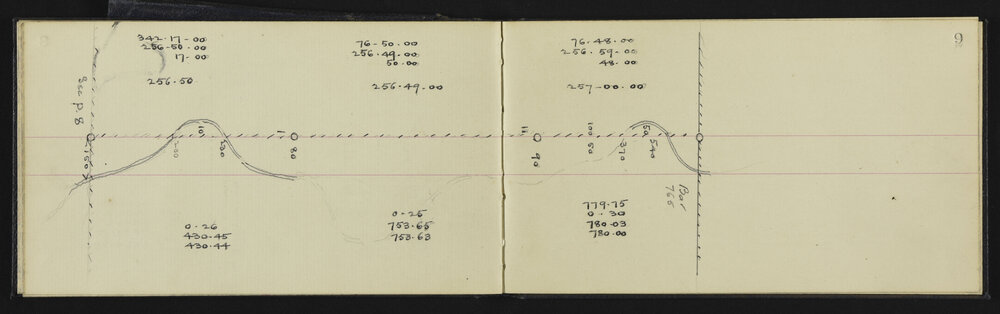 342-17-00
256-50-00
17-00
256-50
76-50-00
256-49-00
50-00
256-49-00
See p. 8
150
200
10
230
11
80
0-26
430.45
430.44
0-25
753.65
753.63
9
76-48-00
256-59-00
48-00
257-00-00
11
90
100
50
370
50
540
Bar
765
779.75
0-30
780.03
780.00